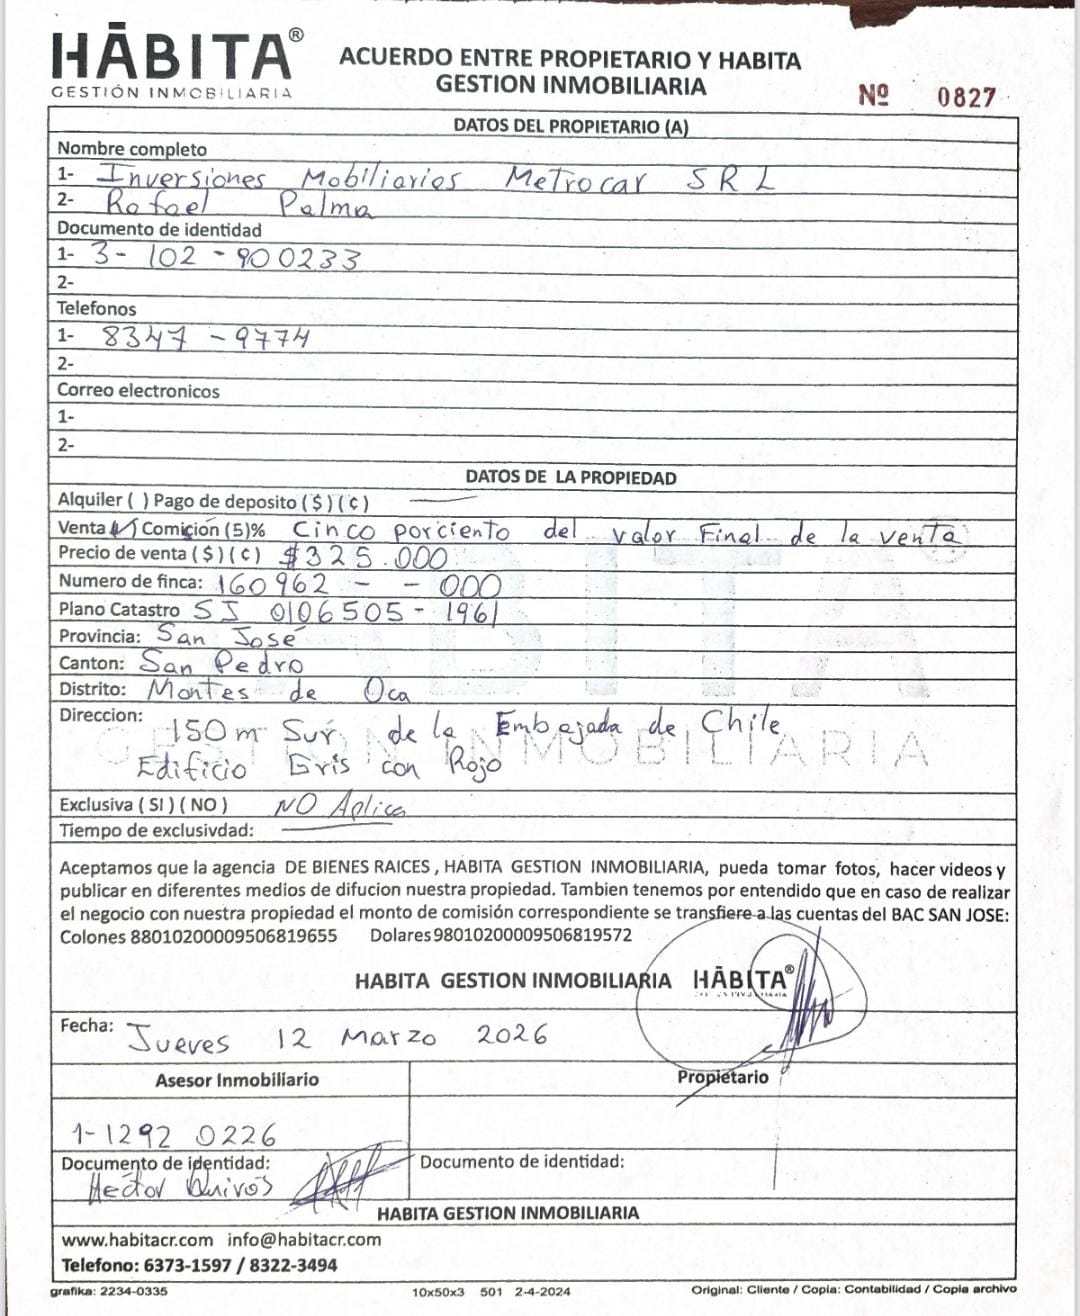 HĀBITA®
GESTIÓN INMOBILIARIA
ACUERDO ENTRE PROPIETARIO Y HABITA
GESTION INMOBILIARIA
Nº 0827
DATOS DEL PROPIETARIO (A)
Nombre completo
1- Inversiones Mobiliarios Metrocar SRL
2- Rafael Palma
Documento de identidad
1- 3-102-900233
2-
Telefonos
1- 8347-9774
2-
Correo electronicos
1-
2-
DATOS DE LA PROPIEDAD
Alquiler ( ) Pago de deposito ($)(¢)
Venta (✓) Comición (5)% Cinco porciento del valor Final de la venta
Precio de venta ($)(¢) $325.000
Numero de finca: 160962 - - 000
Plano Catastro SJ 0106505-1961
Provincia: San José
Canton: San Pedro
Distrito: Montes de Oca
Direccion: 150m Sur de la Embajada de Chile
Edificio Gris con Rojo
HABITA®
GESTION INMOBILIARIA
Exclusiva ( SI ) ( NO ) NO Aplica
Tiempo de exclusivdad:
Aceptamos que la agencia DE BIENES RAICES , HABITA GESTION INMOBILIARIA, pueda tomar fotos, hacer videos y
publicar en diferentes medios de difucion nuestra propiedad. Tambien tenemos por entendido que en caso de realizar
el negocio con nuestra propiedad el monto de comisión correspondiente se transfiere a las cuentas del BAC SAN JOSE:
Colones 88010200009506819655 Dolares 98010200009506819572
HABITA GESTION INMOBILIARIA HĀBITA®
Fecha: Jueves 12 Marzo 2026
Asesor Inmobiliario
Propietario
1-1292 0226
Documento de identidad:
Documento de identidad:
Hector Quiros
HABITA GESTION INMOBILIARIA
www.habitacr.com info@habitacr.com
Telefono: 6373-1597 / 8322-3494
grafika: 2234-0335
10x50x3 501 2-4-2024
Original: Cliente / Copia: Contabilidad / Copia archivo